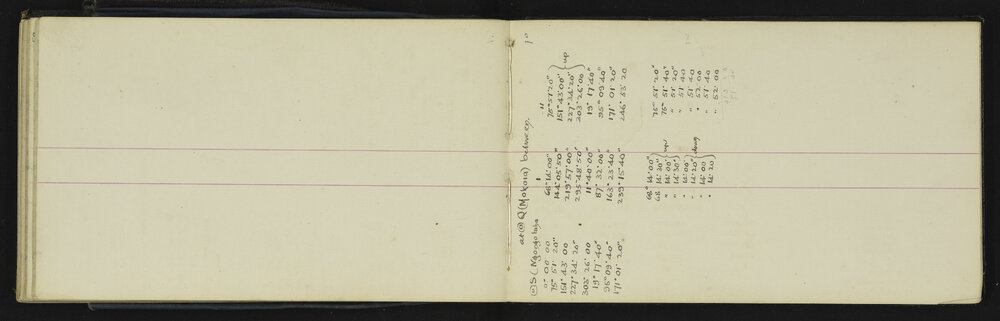 at ⊙ Q (Mokoia) between.
⊙ S (Ngongotaha I II
0° 00 00 68° 14' 00" 75° 51' 20"
75° 51' 20" 144° 05' 50" 151° 43' 00" } up
151° 43' 00 219° 57' 00" 227° 34' 20"
227° 34' 20" 295° 48' 50" 303° 26' 00
303° 26' 00 11° 40' 00" 19° 17' 40"
19° 17' 40" 87° 32' 00" 95° 09' 40"
95° 09' 40" 163° 23' 40" 171° 01' 20"
171° 01' 20" 239° 15' 40" 246° 53' 20
68° 14' 00" 75° 51' 20"
68 14' 20" } up 75° 51' 40"
" 14' 00" " 51' 20
" 14' 30" " 51 40
" 14' 00" " 51 40
" 14' 20" } down " 52 00
" 14' 00 " 51 40
" 14 20 " 52 00